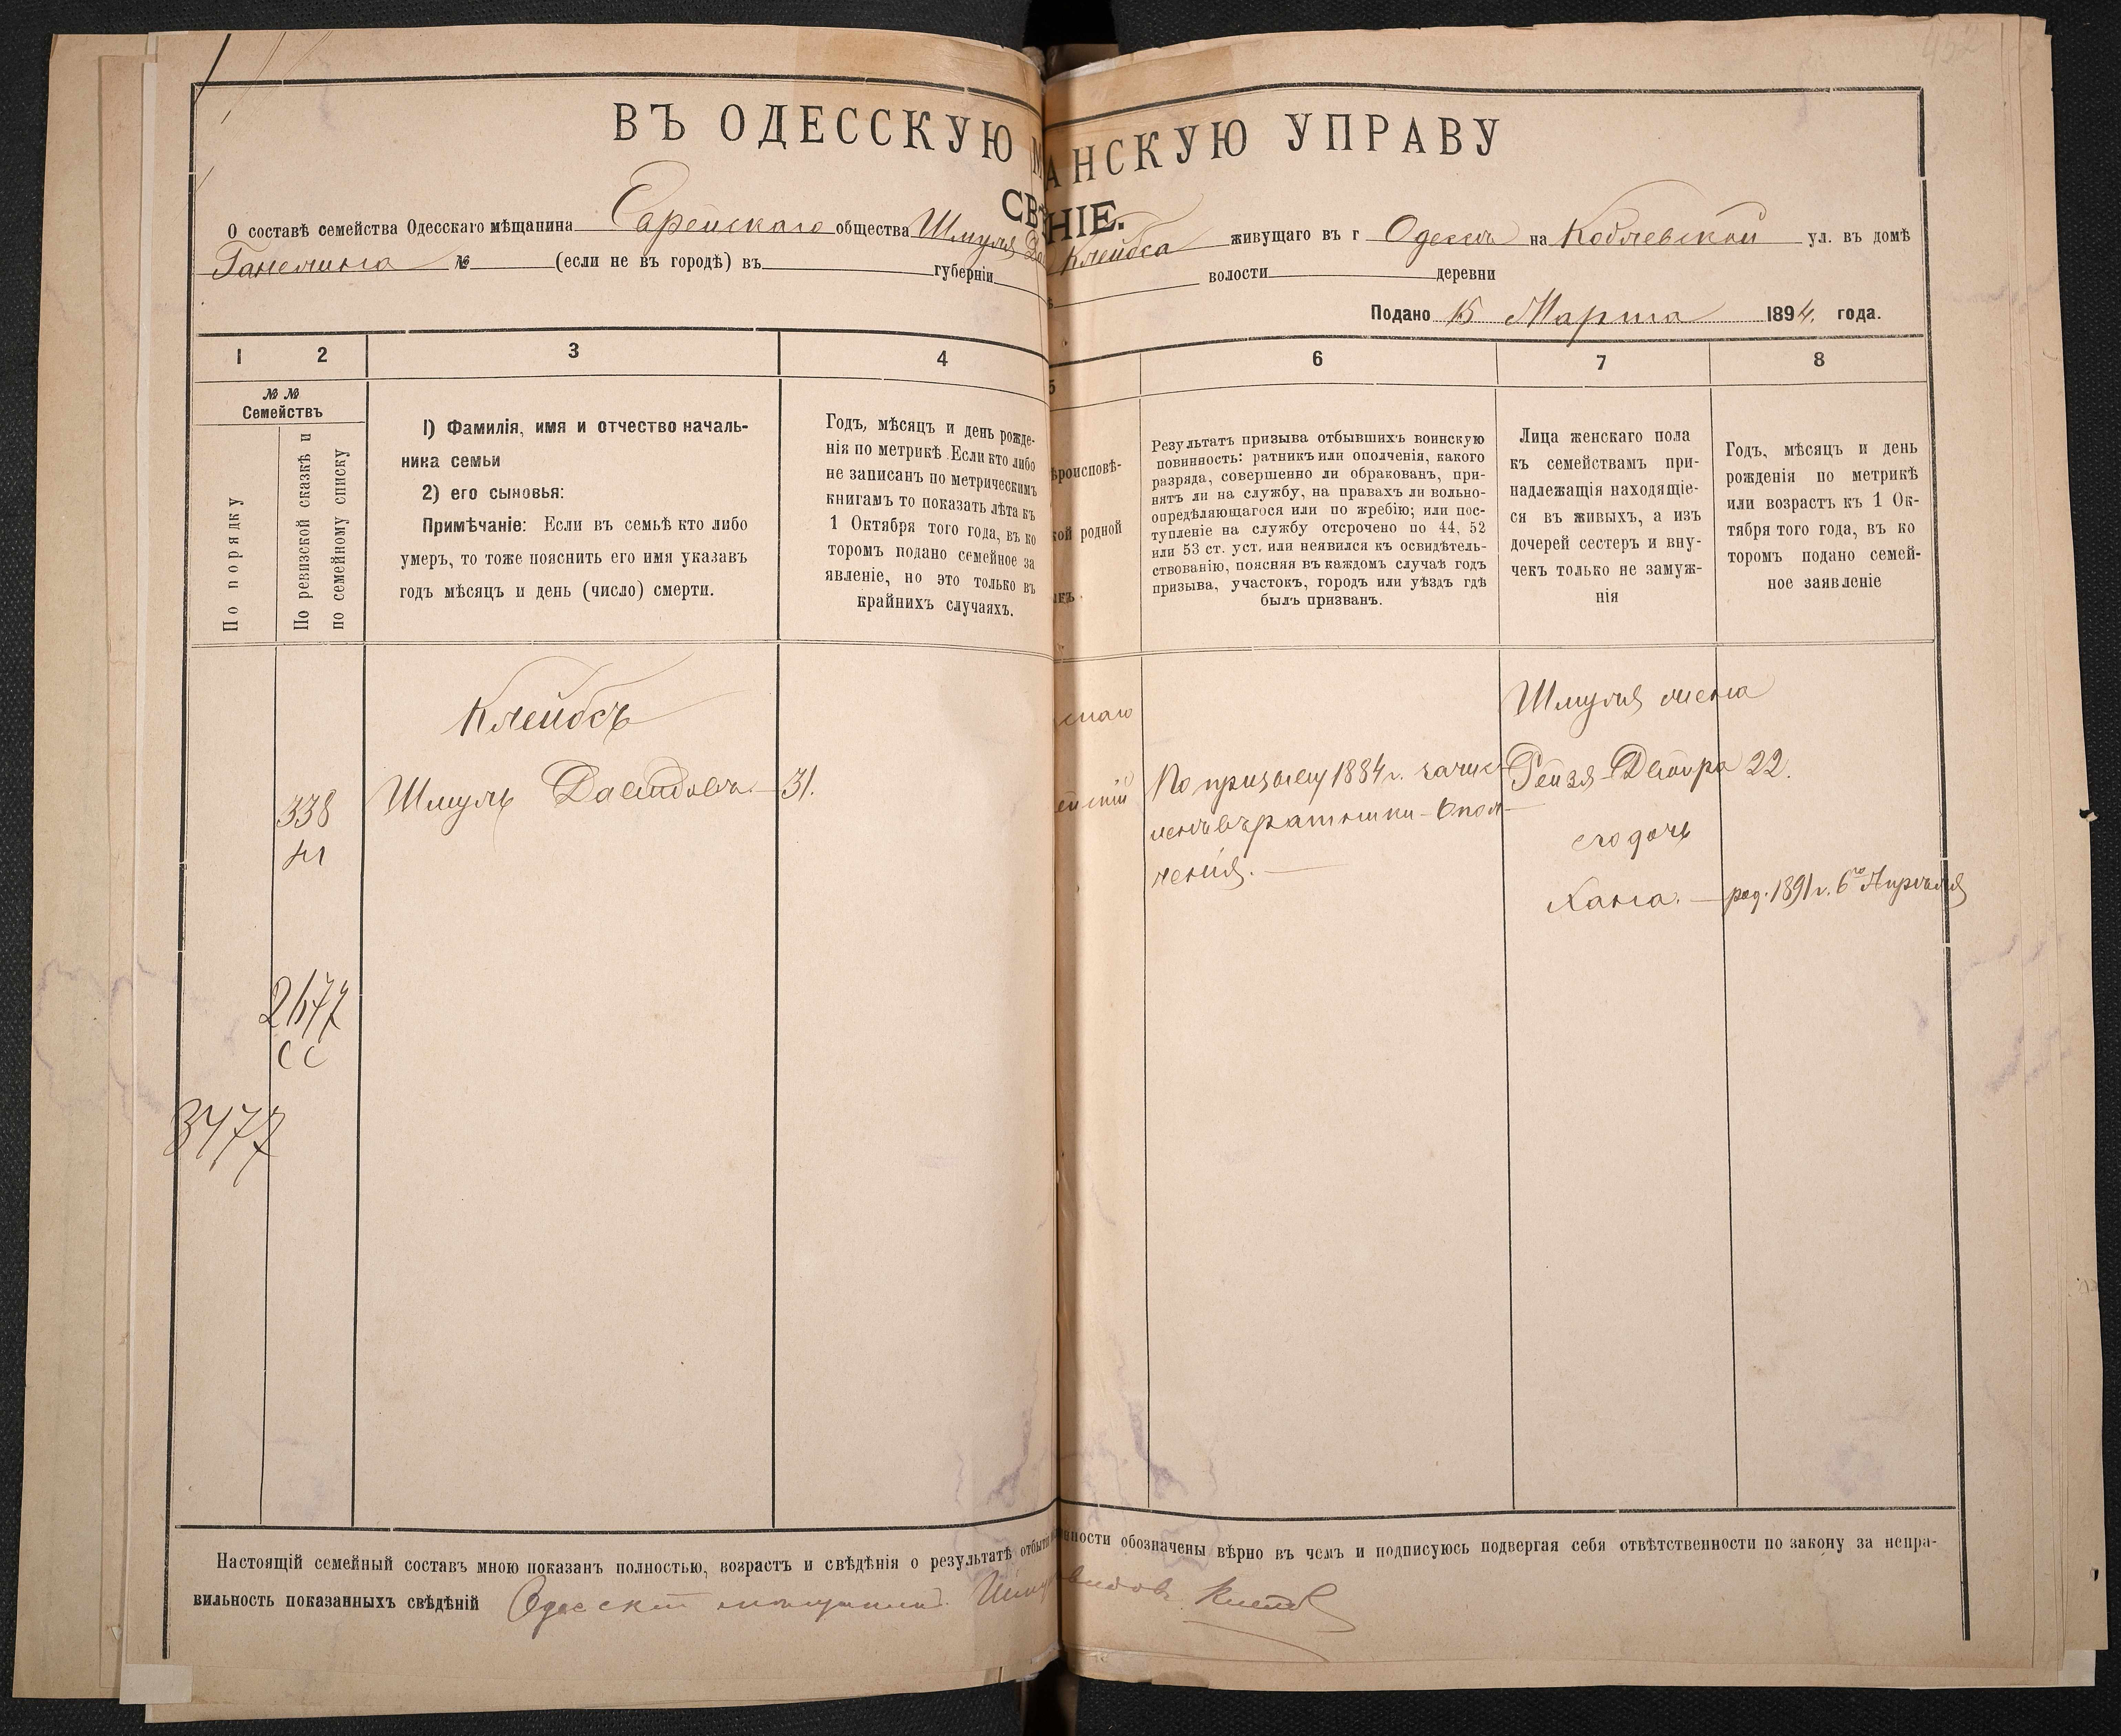 452
ВЪ ОДЕССКУЮ М АНСКУЮ УПРАВУ
СВѢ НІЕ.
О составѣ семейства Одесскаго мѣщанина Еврейскаго общества Шмуля Да Клейбса живущаго въ г Одессѣ на Коблевской ул. въ домѣ
№ (если не въ городѣ) въ губерніи волости деревни
Подано 15 Марта 1894. года.
1 2 3 4 5 6 7 8
№ №
Семействъ
По порядку
По ревизской сказкѣ и
по семейному списку
1) Фамилія, имя и отчество началь-
ника семьи
2) его сыновья:
Примѣчаніе: Если въ семьѣ кто либо
умеръ, то тоже пояснить его имя указавъ
годъ мѣсяцъ и день (число) смерти.
Годъ, мѣсяцъ и день рожде-
нія по метрикѣ. Если кто либо
не записанъ по метрическимъ
книгамъ то показать лѣта къ
1 Октября того года, въ ко
торомъ подано семейное за
явленіе, но это только въ
крайнихъ случаяхъ.
ѣроисповѣ-
кой родной
Результатъ призыва отбывшихъ воинскую
повинность: ратникъ или ополченія, какого
разряда, совершенно ли обракованъ, при-
нятъ ли на службу, на правахъ ли вольно-
опредѣляющагося или по жребію; или пос-
тупленіе на службу отсрочено по 44, 52
или 53 ст. уст. или неявился къ освидѣтель-
ствованію, поясняя въ каждомъ случаѣ годъ
призыва, участокъ, городъ или уѣздъ гдѣ
былъ призванъ.
Лица женскаго пола
къ семействамъ при-
надлежащія находящіе-
ся въ живыхъ, а изъ
дочерей сестеръ и вну-
чекъ только не замуж-
нія
Годъ, мѣсяцъ и день
рожденія по метрикѣ
или возрастъ къ 1 Ок-
тября того года, въ ко
торомъ подано семей-
ное заявленіе
Клейбсъ
Шмуль Давидовъ — 31.
338
М
скаго
ейскій
По призыву 1884 г. зачис-
ленъ въ ратники — Опол-
ченія. —
Шмуля жена
Рейзя-Двойра 22.
его дочь
Хана. — род. 1891 г. 6го Апрѣля
СС
3477
Настоящій семейный составъ мною показанъ полностью, возрастъ и свѣдѣнія о результатѣ отбыті нности обозначены вѣрно въ чемъ и подписуюсь подвергая себя отвѣтственности по закону за непра-
вильность показанныхъ свѣдѣній Одесскій мещанинъ Шму видов Клейбс